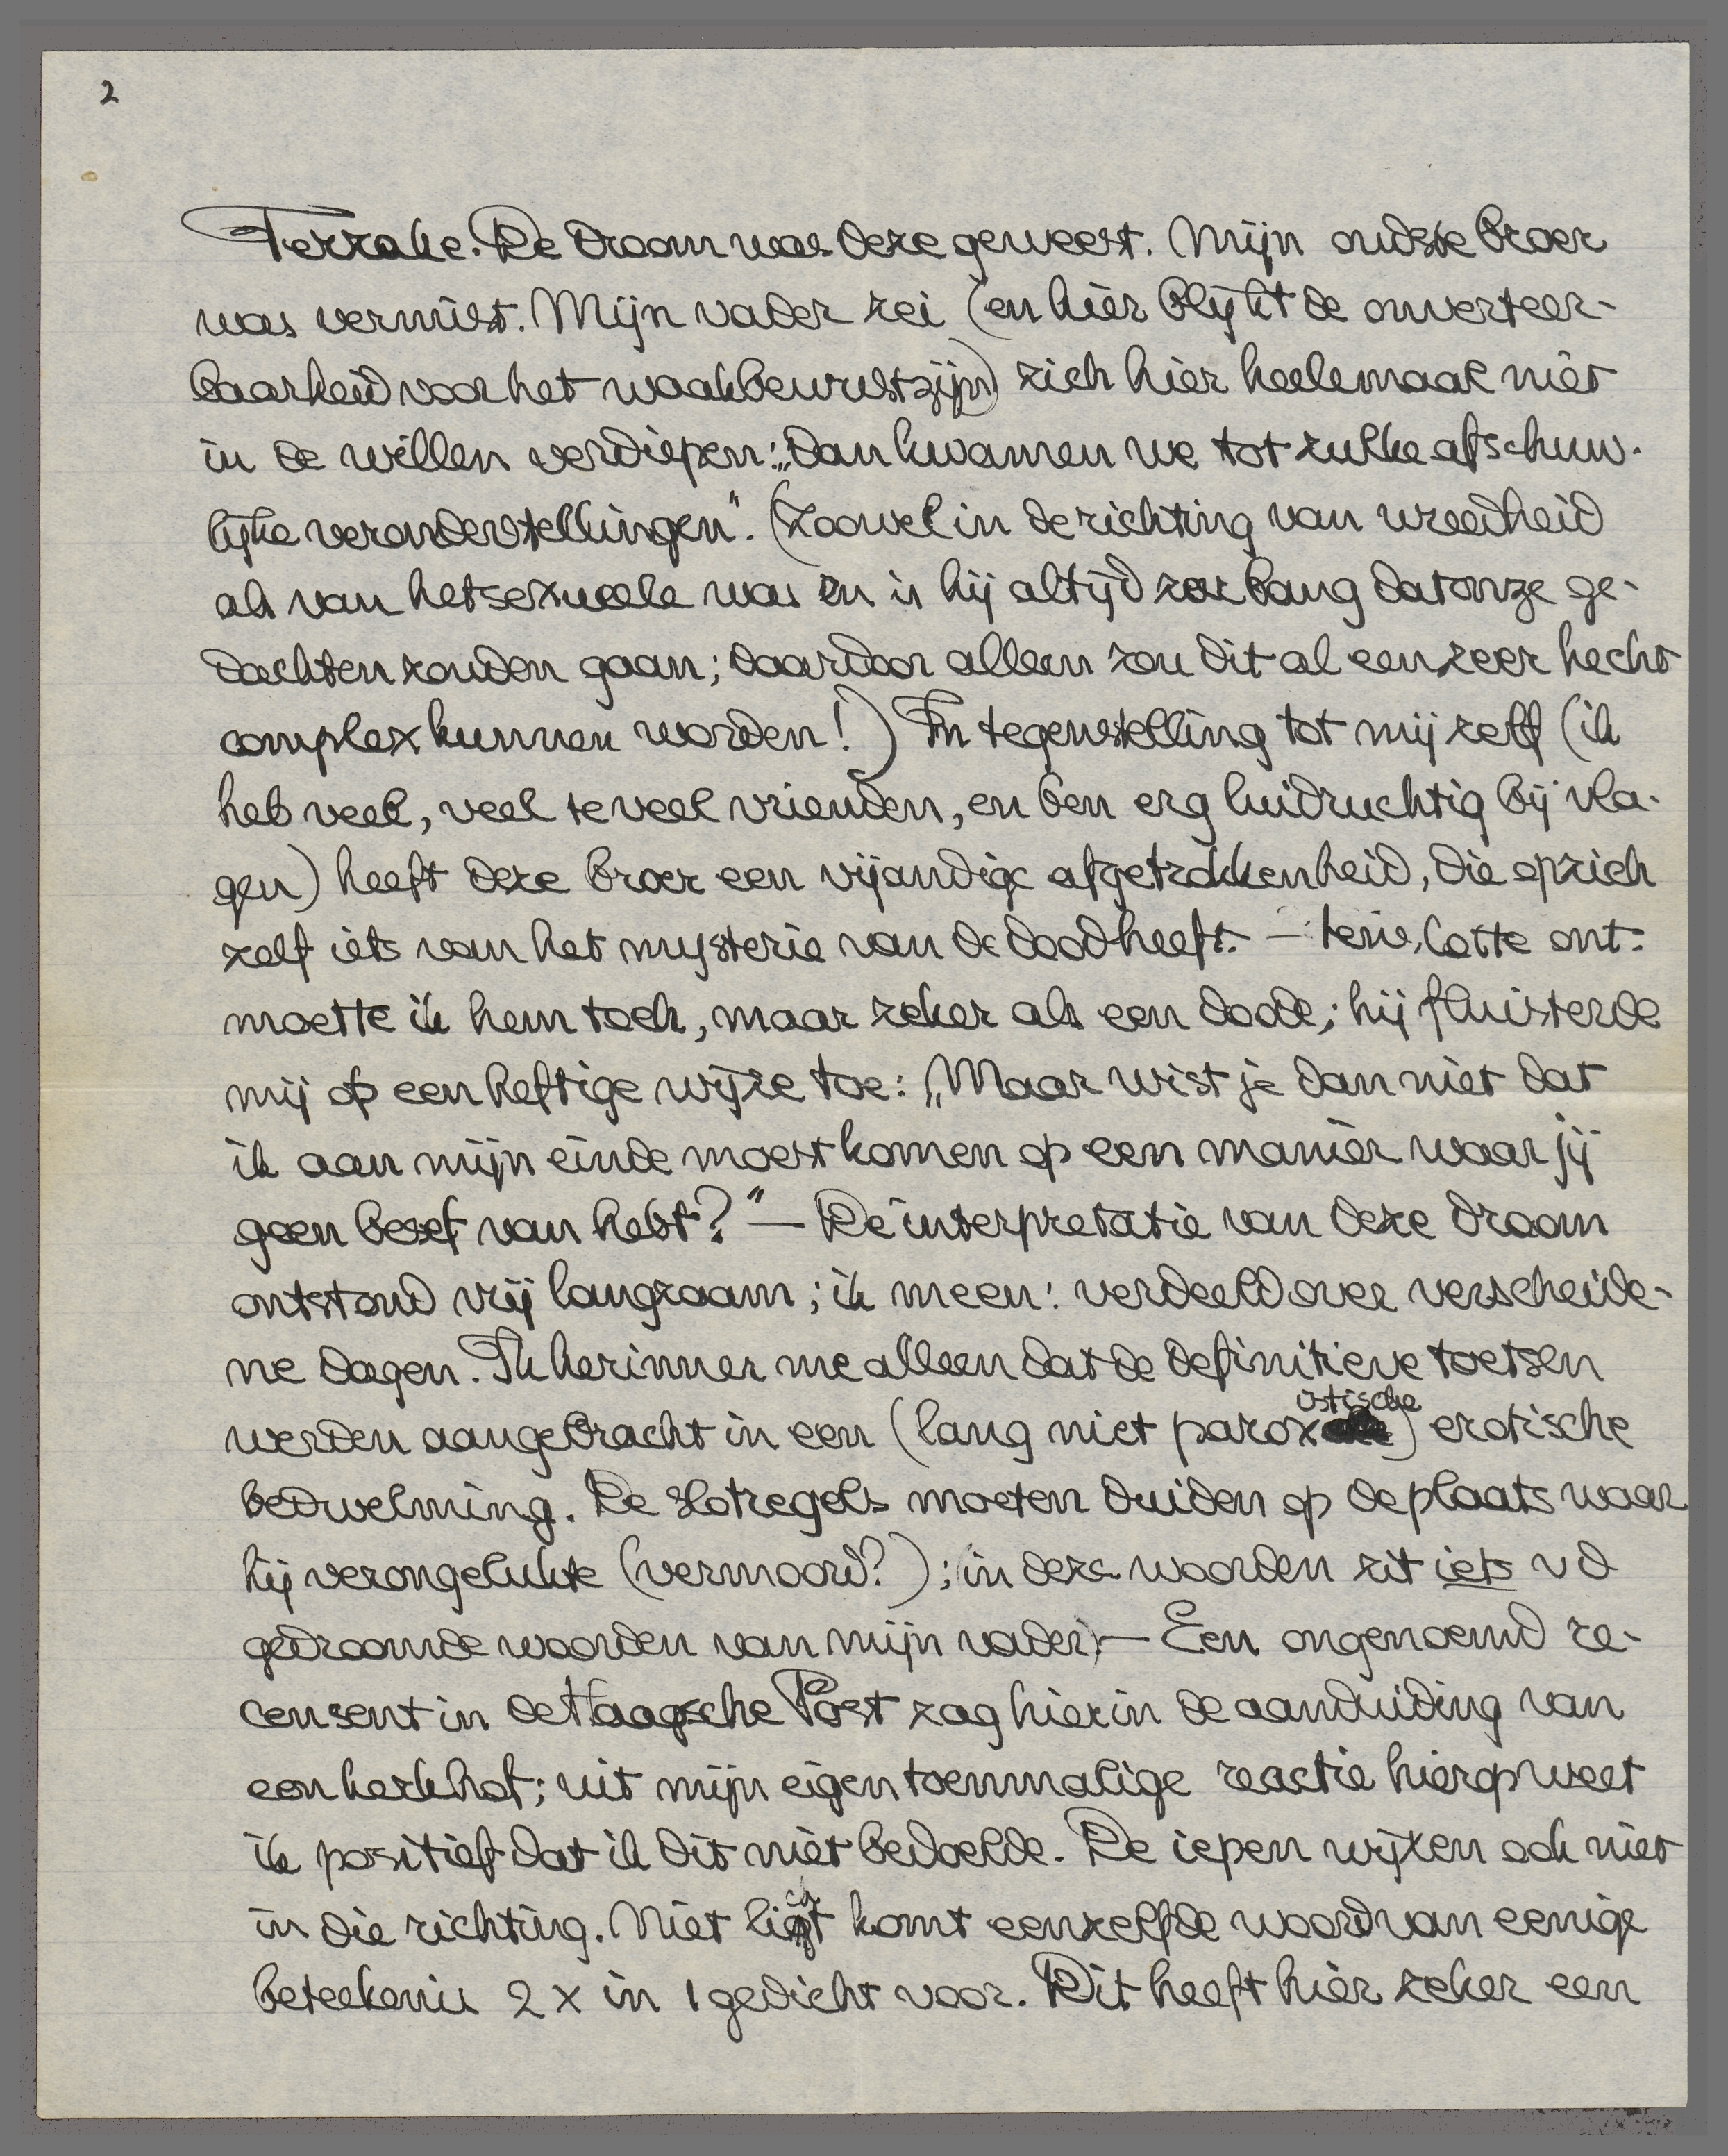 2
Terzake. De droom was deze geweest. Mijn oudste broer
was vermist. Mijn vader zei (en hier blijkt de onverteer-
baarheid voor het waakbewustzijn) zich hier heelemaal niet
in de willen verdiepen: „dan kwamen we tot zulke afschuw-
lijke veronderstellingen". (Zoowel in de richting van wreedheid
als van het sexueele was en is hij altijd zoo bang dat onze ge-
dachten zouden gaan; daardoor alleen zou dit al een zeer hecht
complex kunnen worden!) In tegenstelling tot mij zelf (ik
heb veel, veel te veel vrienden, en ben erg luidruchtig bij vla-
gen) heeft deze broer een vijandige afgetrokkenheid, die op zich
zelf iets van het mysterie van de dood heeft. — Ten slotte ont-
moette ik hem toch, maar zeker als een doode; hij fluisterde
mij op een heftige wijze toe: „Maar wist je dan niet dat
ik aan mijn einde moest komen op een manier waar jij
geen besef van hebt?" — De interpretatie van deze droom
ontstond vrij langzaam; ik meen: verdeeld over verscheide-
ne dagen. Ik herinner me alleen dat de definitieve toetsen
werden aangebracht in een (lang niet paroxistische) erotische
bedwelming. De slotregels moeten duiden op de plaats waar
hij verongelukte (vermoord?); in deze woorden zit iets v d
gedroomde woorden van mijn vader. — Een ongenoemd re-
censent in de Haagsche Post zag hierin de aanduiding van
een kerkhof; uit mijn eigen toenmalige reactie hierop weet
ik positief dat ik dit niet bedoelde. De iepen wijzen ook niet
in die richting. Niet licht komt eenzelfde woord van eenige
beteekenis 2 x in 1 gedicht voor. Dit heeft hier zeker een